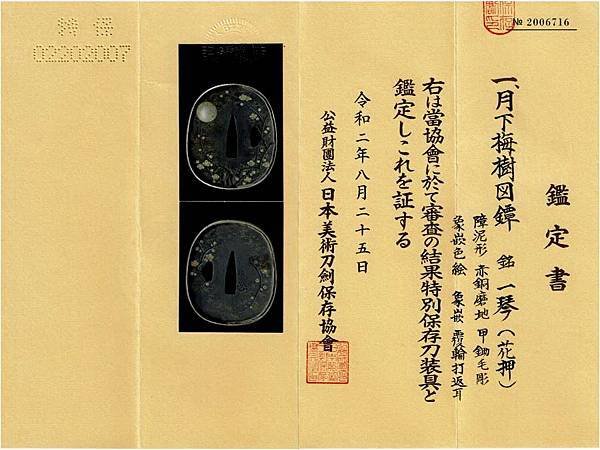 № 2006716
鑑定書
一、月下梅樹図鐔 銘 一琴(花押)
障泥形 赤銅磨地 甲鋤毛彫
象嵌色絵 象嵌 覆輪打返耳
右は當協會に於て審査の結果特別保存刀装具と
鑑定しこれを証する
令和二年八月二十五日
公益財團法人 日本美術刀劍保存協會
特保
02202007